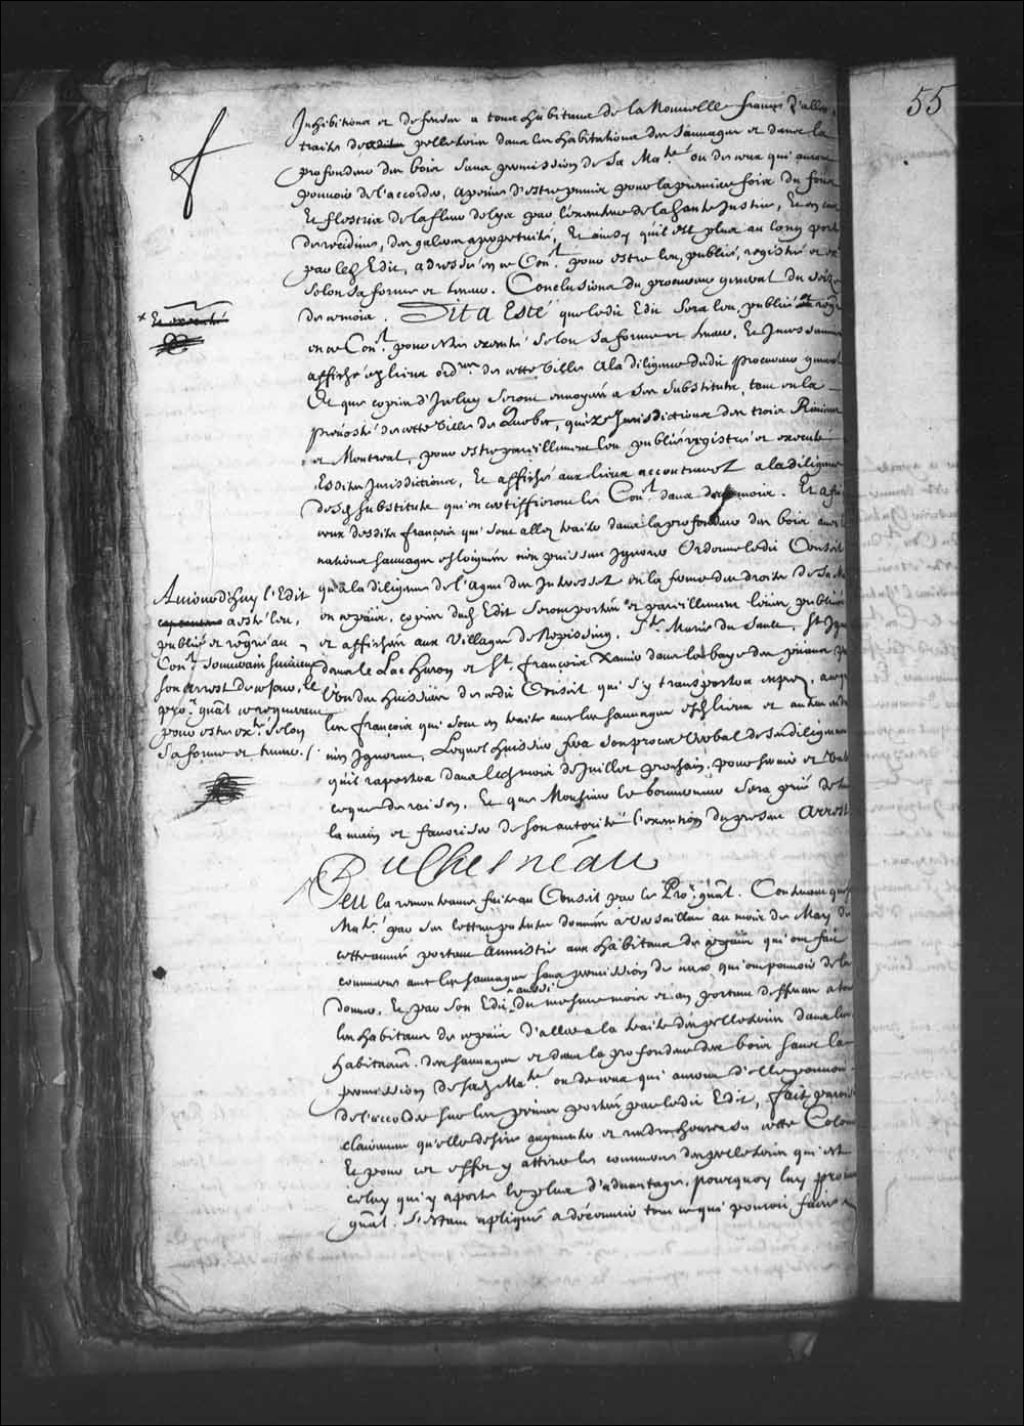 55
Inhibitions et defenses a tous habitans de la Nouvelle france d'aller
traiter des pelleteries dans les habitations des sauvages et dans la
profondeur des bois sans permission de sa Ma.té ou de ceux qui auront
pouvoir de l'accorder, a peine d'estre punis pour la premiere fois du fouet
Et flestris de la fleur de lys par l'executeur de la haute Justice, Et en cas
de recidive, des galeres a perpetuité, Et ainsy quil est plus au long porté
par led. Edit, adressé en ce Con.l pour estre leu, publié, registré et
selon sa forme et teneur. Conclusions du procureur general du
de ce mois. Dit a Esté que ledit Edit sera leu, publié et
en ce Con.l pour estre executé selon sa forme et teneur, Et
affiché ez lieux ord.res de cette ville a la diligence dudit procureur general
Et que copies d'Iceluy seront envoyées a ses substituts, tant en la
prevosté de cette ville de Quebec, qu'ez Jurisdictions des trois Rivieres
et Montreal, pour estre pareillement leu publié registré et executé
Esdites Jurisdictions, Et affiché aux lieux accoutumez a la diligence
desd. substituts qui en certiffieront le Con.l dans deux mois. Et afin
ceux desdits françois qui sont allez traiter dans la profondeur des bois avec
nations sauvages esloignées n'en puissent Ignorer Ordonne ledit Conseil
qu'a la diligence de l'agent des Interessez en la ferme des droits de sa Ma
en ce païs, copies dud. Edit seront portées et pareillement leües publiées
et affichées aux villages de Nepissing, S.te Marie du Sault, St Ignace
dans le Lac huron et St. françois Xavier dans la baye des puans
l'un des huissiers dudit Conseil qui s'y transportera exprez,
les françois qui sont en traite avec les sauvages esd. lieux et autres
n'en Ignorent, Lequel huissier fera son procez verbal de ses diligences
qu'il raportera dans led. mois de Juillet prochain, pour servir et valoir
ce que de raison, Et que Monsieur le Gouverneur sera prié de
la main et favoriser de son autorité l'execution du present Arrest
DuChesneau
* Et executé
Aujourd'huy l'Edit
a esté leu,
publié et regré au
Con.l souverain suivant
son arrest de ce jour, le
pro.r gñal ce requerant
pour estre ex.té selon
sa forme et teneur. /.
Veu la remontrance faite au Conseil par le Pro.r gñal. Contenant que
Ma.té par ses lettres patentes données a Versailles au mois de May de
cette année portant amnistie aux habitans de ce païs qui ont fait
commerce avec les sauvages sans permission de ceux qui ont pouvoir de la
donner, Et par son Edit aussi du mesme mois et an portant deffense a tous
les habitans de ce païs d'aller a la traite des pelleteries dans les
habitaõns des sauvages et dans la profondeur des bois sans la
permission de sad. Ma.té ou de ceux qui auront d'elle pouvoir
de l'accorder sur les peines portées par ledit Edit, fait
clairement qu'elle desire augmenter et rendre heureuse cette Colonie
Et pour cet effet y attirer le commerce des pelleteries qui est
celuy qui y aporte le plus d'advantages, pourquoy luy pro
gñal. s'estant apliqué a decouvrir tout ce qui pouvoit faire